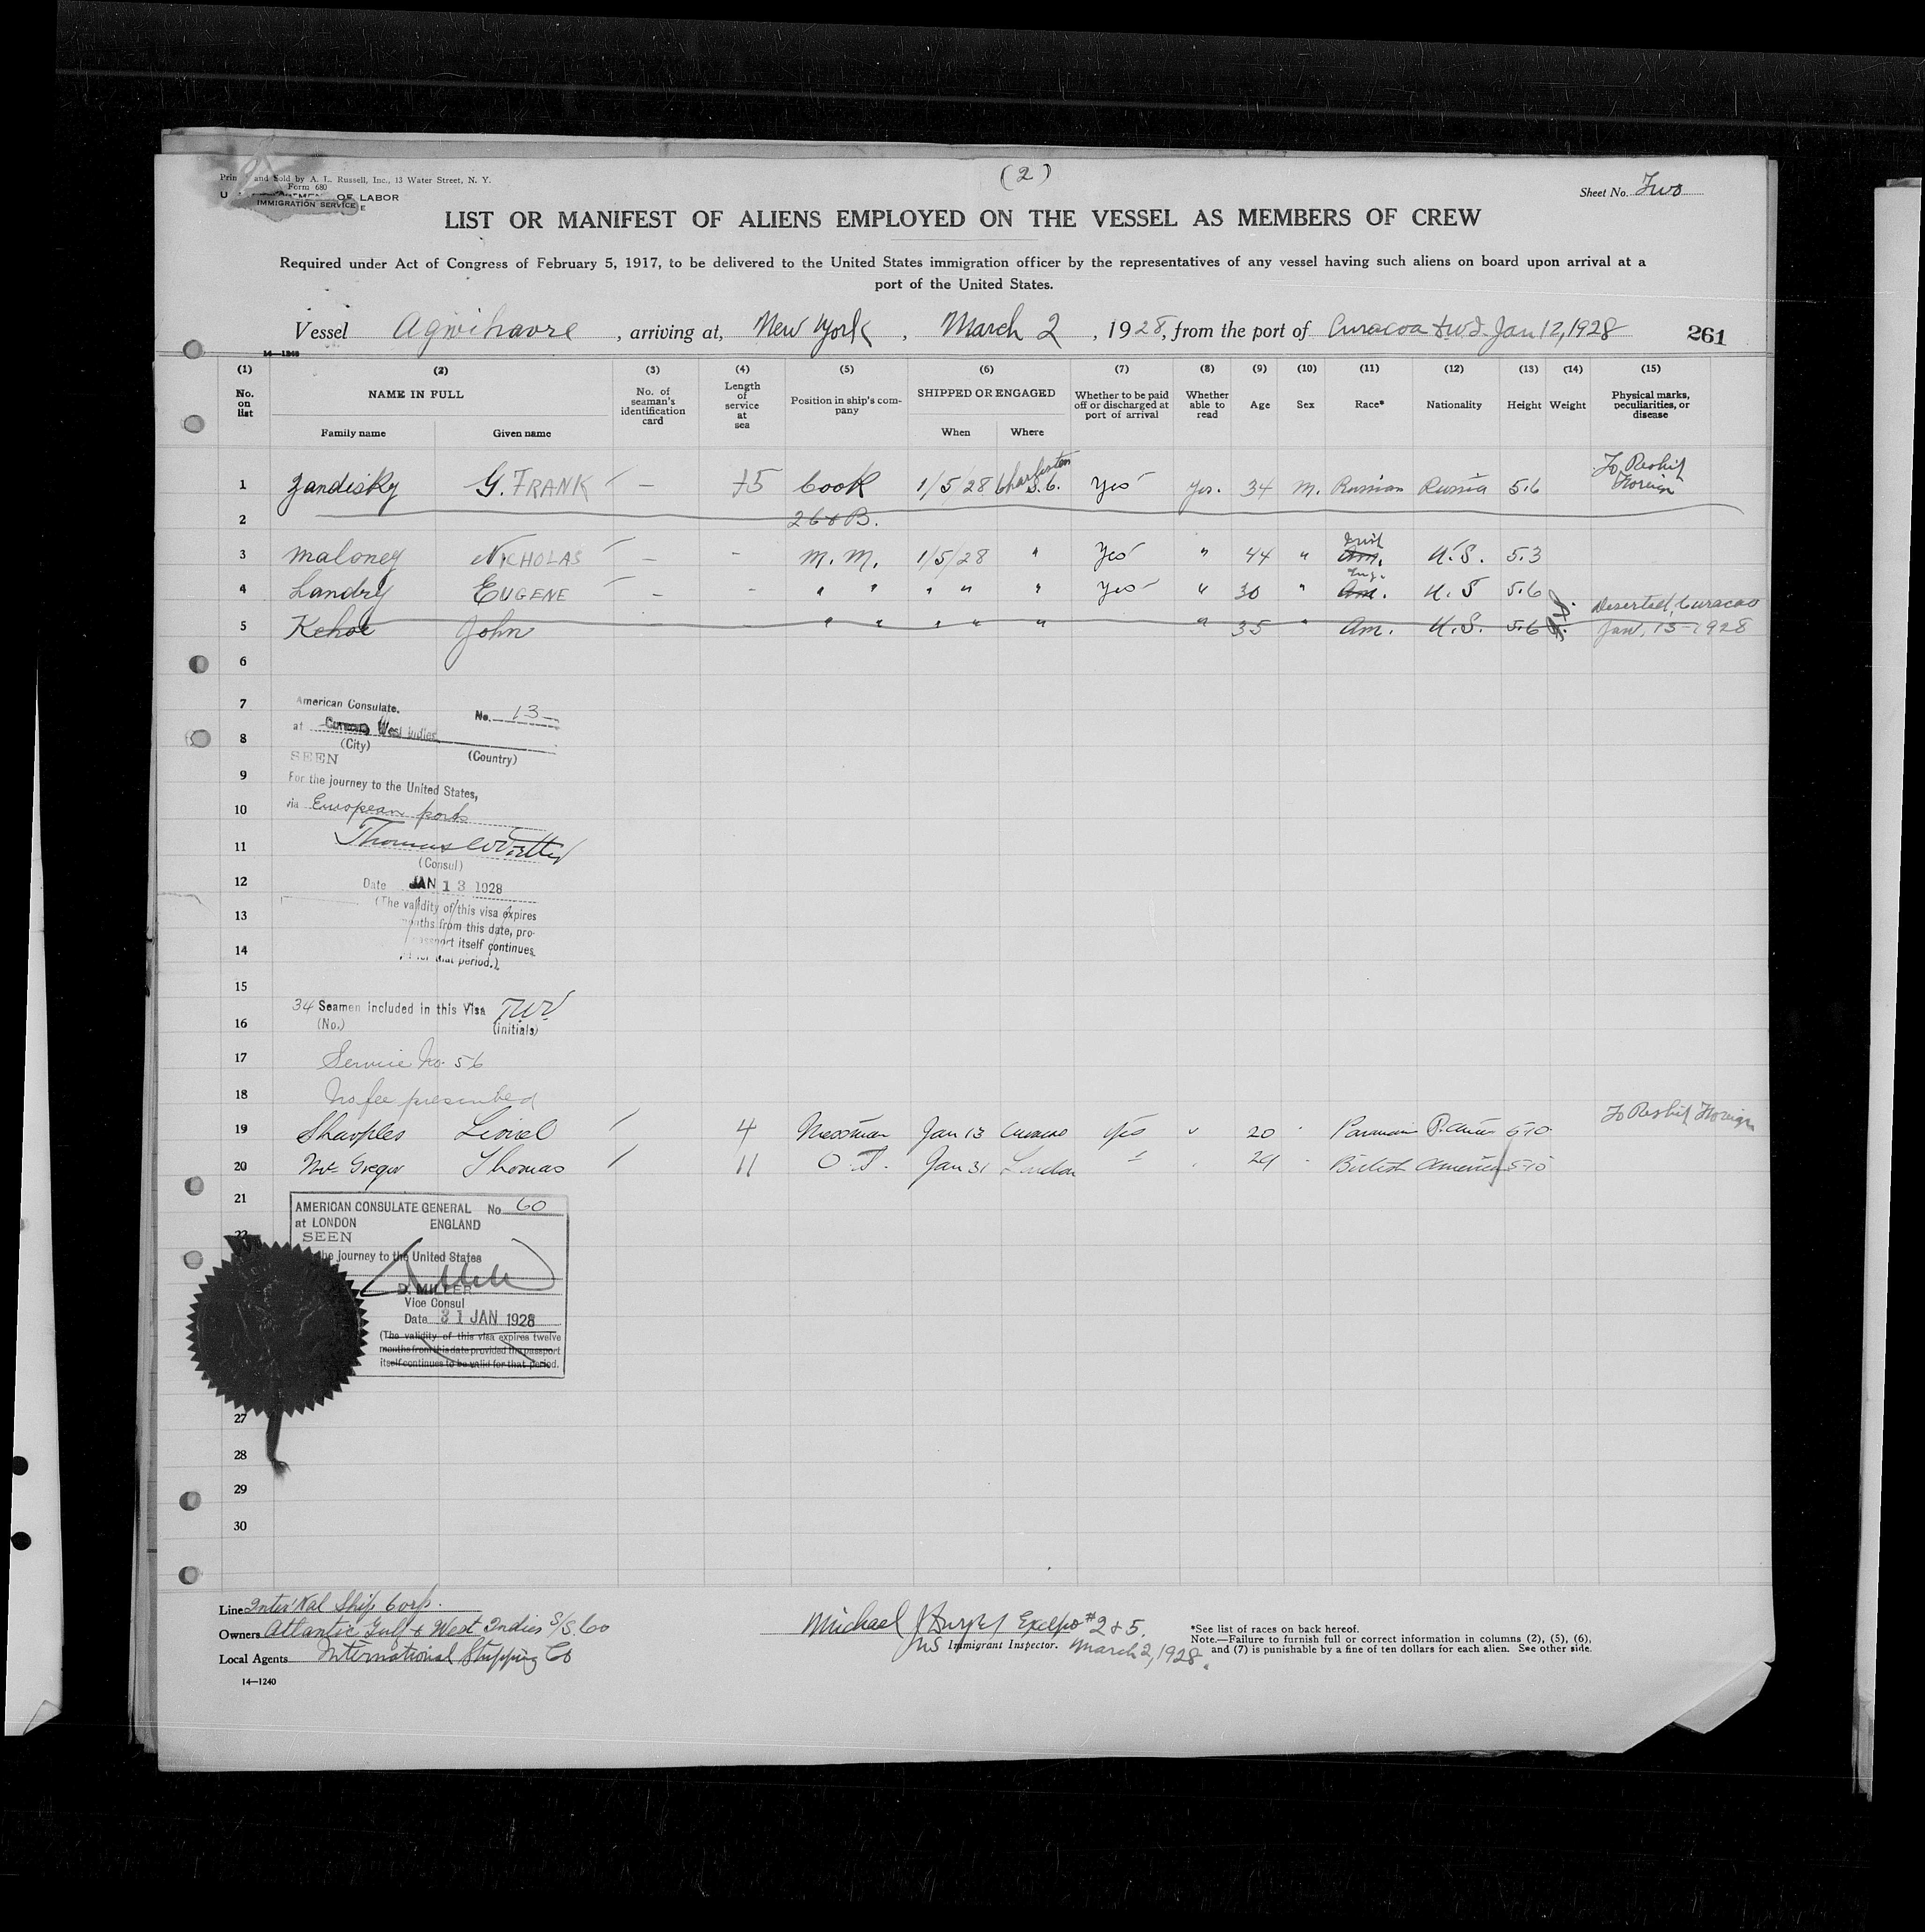 (2)
and Sold by A. L. Russell, Inc., 13 Water Street, N. Y.
Form 680
OF LABOR
IMMIGRATION SERVICE
Sheet No. Two
LIST OR MANIFEST OF ALIENS EMPLOYED ON THE VESSEL AS MEMBERS OF CREW
Required under Act of Congress of February 5, 1917, to be delivered to the United States immigration officer by the representatives of any vessel having such aliens on board upon arrival at a
port of the United States.
Vessel Agwihavre, arriving at, New York, March 2, 1928, from the port of Curacoa Jan 12, 1928 261
14—1240
(1) (2) (3) (4) (5) (6) (7) (8) (9) (10) (11) (12) (13) (14) (15)
No. on list NAME IN FULL No. of seaman's identification card Length of service at sea Position in ship's company SHIPPED OR ENGAGED Whether to be paid off or discharged at port of arrival Whether able to read Age Sex Race* Nationality Height Weight Physical marks, peculiarities, or disease
Family name Given name When Where
1 Zandisky G. FRANK — 15 Cook 1/5/28 Charleston S.C. Yes Yes. 34 M. Russian Russia 5.6 To Reship Foreign
2
3 Maloney NICHOLAS — - M. M. 1/5/28 " Yes " 44 " Irish Am. U.S. 5.3
4 Landry EUGENE — - " " " " " Yes " 30 " Eng. Am. U.S 5.6
5 Kehoe John " " " " " " 35 " Am. U.S. 5.6 Deserted, Curacao Jan. 13-1928
6
7
American Consulate. No. 13
8
at Curacao, West Indies
(City) (Country)
SEEN
9
For the journey to the United States,
10
via European ports
11
(Consul)
12
Date JAN 13 1928
13
(The validity of this visa expires
months from this date, pro-
14
passport itself continues
for that period.)
15
16
34 Seamen included in this Visa TWV
(No.) (initials)
17 Service No. 56
18 No fee prescribed
19 Sharples Lionel 4 Messman Jan 13 Curacao yes " 20 " 5-10 To Reship Foreign
20 McGregor Thomas 11 O.S. Jan 31 London " 24 " British America 5-10
21
AMERICAN CONSULATE GENERAL No 60
at LONDON ENGLAND
SEEN
the journey to the United States
D. MILLER
Vice Consul
Date 31 JAN 1928
(The validity of this visa expires twelve
months from this date provided the passport
itself continues to be valid for that period.
27
28
29
30
Line Inter'Nal Ship Corp.
Owners Atlantic Gulf & West Indies S/S. Co
Local Agents International Shipping Co
14—1240
Michael J Except #2 & 5.
Immigrant Inspector. March 2, 1928.
*See list of races on back hereof.
Note.—Failure to furnish full or correct information in columns (2), (5), (6),
and (7) is punishable by a fine of ten dollars for each alien. See other side.